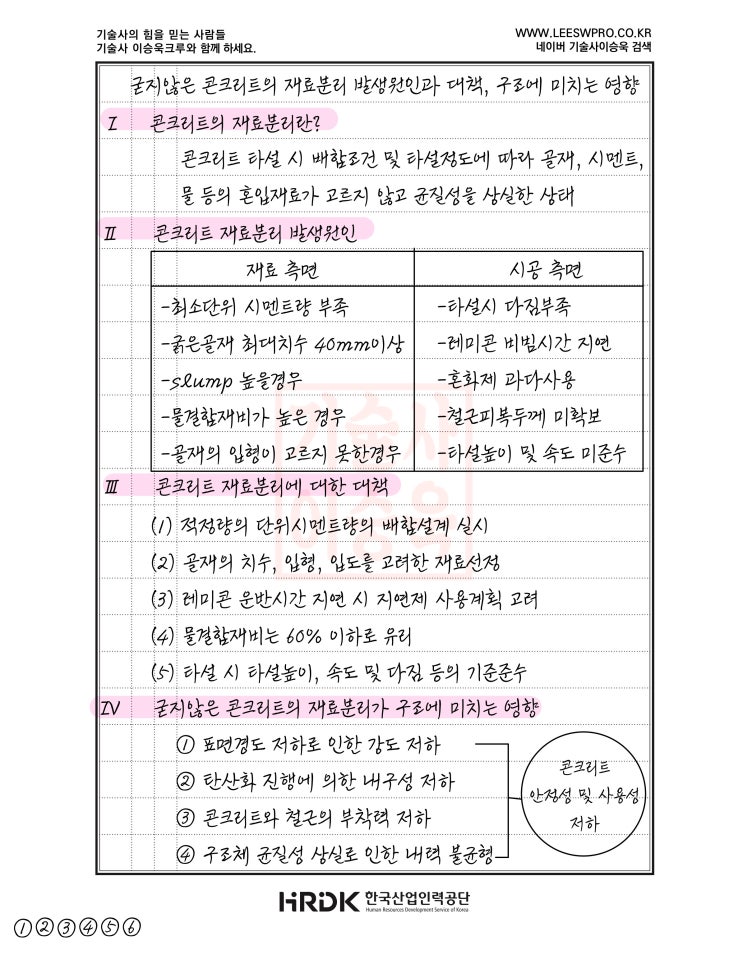 기술사의 힘을 믿는 사람들
기술사 이승욱크루와 함께 하세요.
WWW.LEESWPRO.CO.KR
네이버 기술사이승욱 검색
굳지않은 콘크리트의 재료분리 발생원인과 대책, 구조에 미치는 영향
Ⅰ 콘크리트의 재료분리란?
콘크리트 타설 시 배합조건 및 타설정도에 따라 골재, 시멘트,
물 등의 혼입재료가 고르지 않고 균질성을 상실한 상태
Ⅱ 콘크리트 재료분리 발생원인
재료 측면 시공 측면
-최소단위 시멘트량 부족 -타설시 다짐부족
-굵은골재 최대치수 40mm이상 -레미콘 비빔시간 지연
-slump 높을경우 -혼화제 과다사용
-물결합재비가 높은 경우 -철근피복두께 미확보
-골재의 입형이 고르지 못한경우 -타설높이 및 속도 미준수
Ⅲ 콘크리트 재료분리에 대한 대책
(1) 적정량의 단위시멘트량의 배합설계 실시
(2) 골재의 치수, 입형, 입도를 고려한 재료선정
(3) 레미콘 운반시간 지연 시 지연제 사용계획 고려
(4) 물결합재비는 60% 이하로 유리
(5) 타설 시 타설높이, 속도 및 다짐 등의 기준준수
Ⅳ 굳지않은 콘크리트의 재료분리가 구조에 미치는 영향
① 표면경도 저하로 인한 강도 저하
② 탄산화 진행에 의한 내구성 저하
③ 콘크리트와 철근의 부착력 저하
④ 구조체 균질성 상실로 인한 내력 불균형
콘크리트
안정성 및 사용성
저하
기술사
이승욱
HRDK 한국산업인력공단
Human Resources Development Service of Korea
①②③④⑤⑥